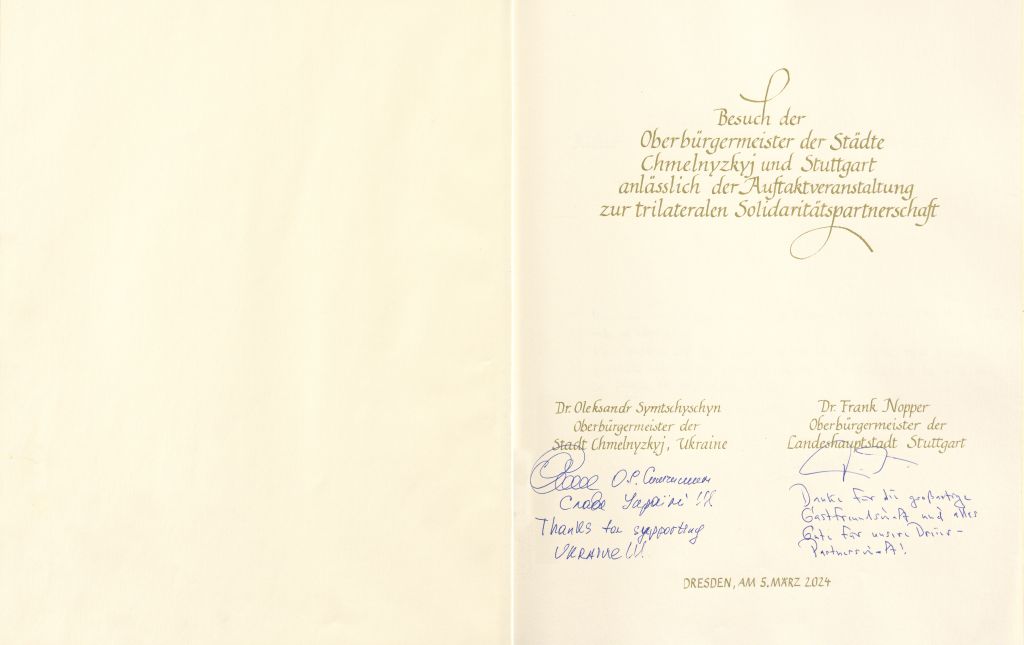 Besuch der
Oberbürgermeister der Städte
Chmelnyzkyj und Stuttgart
anlässlich der Auftaktveranstaltung
zur trilateralen Solidaritätspartnerschaft
Dr. Oleksandr Symtschyschyn
Oberbürgermeister der
Stadt Chmelnyzkyj, Ukraine
О.С. Симчишин
Слава Україні !!!
Thanks for supporting
UKRAINE !!!
Dr. Frank Nopper
Oberbürgermeister der
Landeshauptstadt Stuttgart
Danke für die großartige
Gastfreundschaft und alles
Gute für unsere Dreier-
Partnerschaft!
DRESDEN, AM 5. MÄRZ 2024